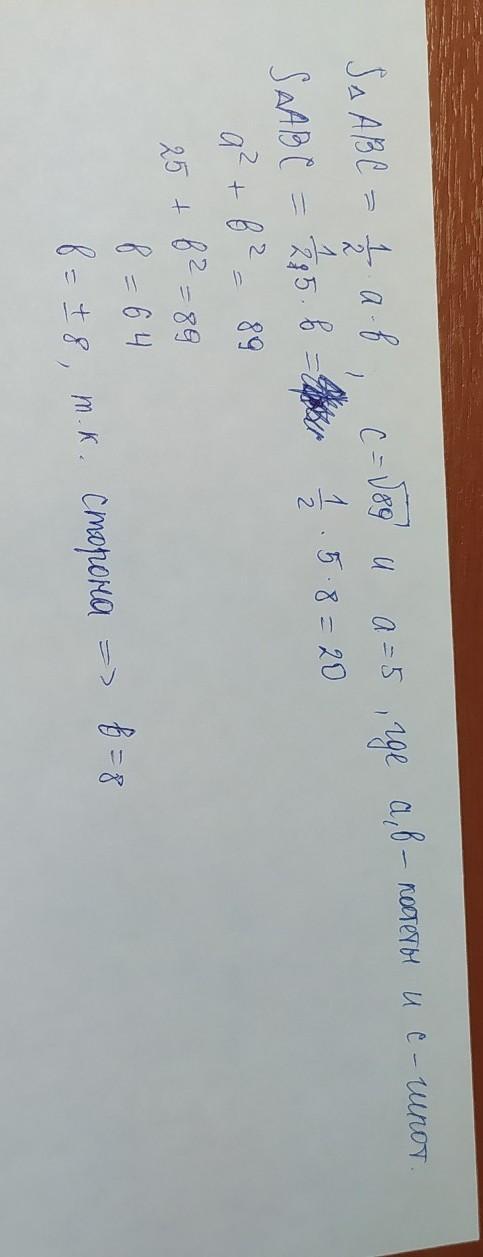 S△ABC = 1/2 · a · b, c = √89 и a = 5, где a, b – катеты и c – гипот.
S△ABC = 1/2 · 5 · b = 1/2 · 5 · 8 = 20
a² + b² = 89
25 + b² = 89
b = 64
b = ± 8, т.к. сторона => b = 8